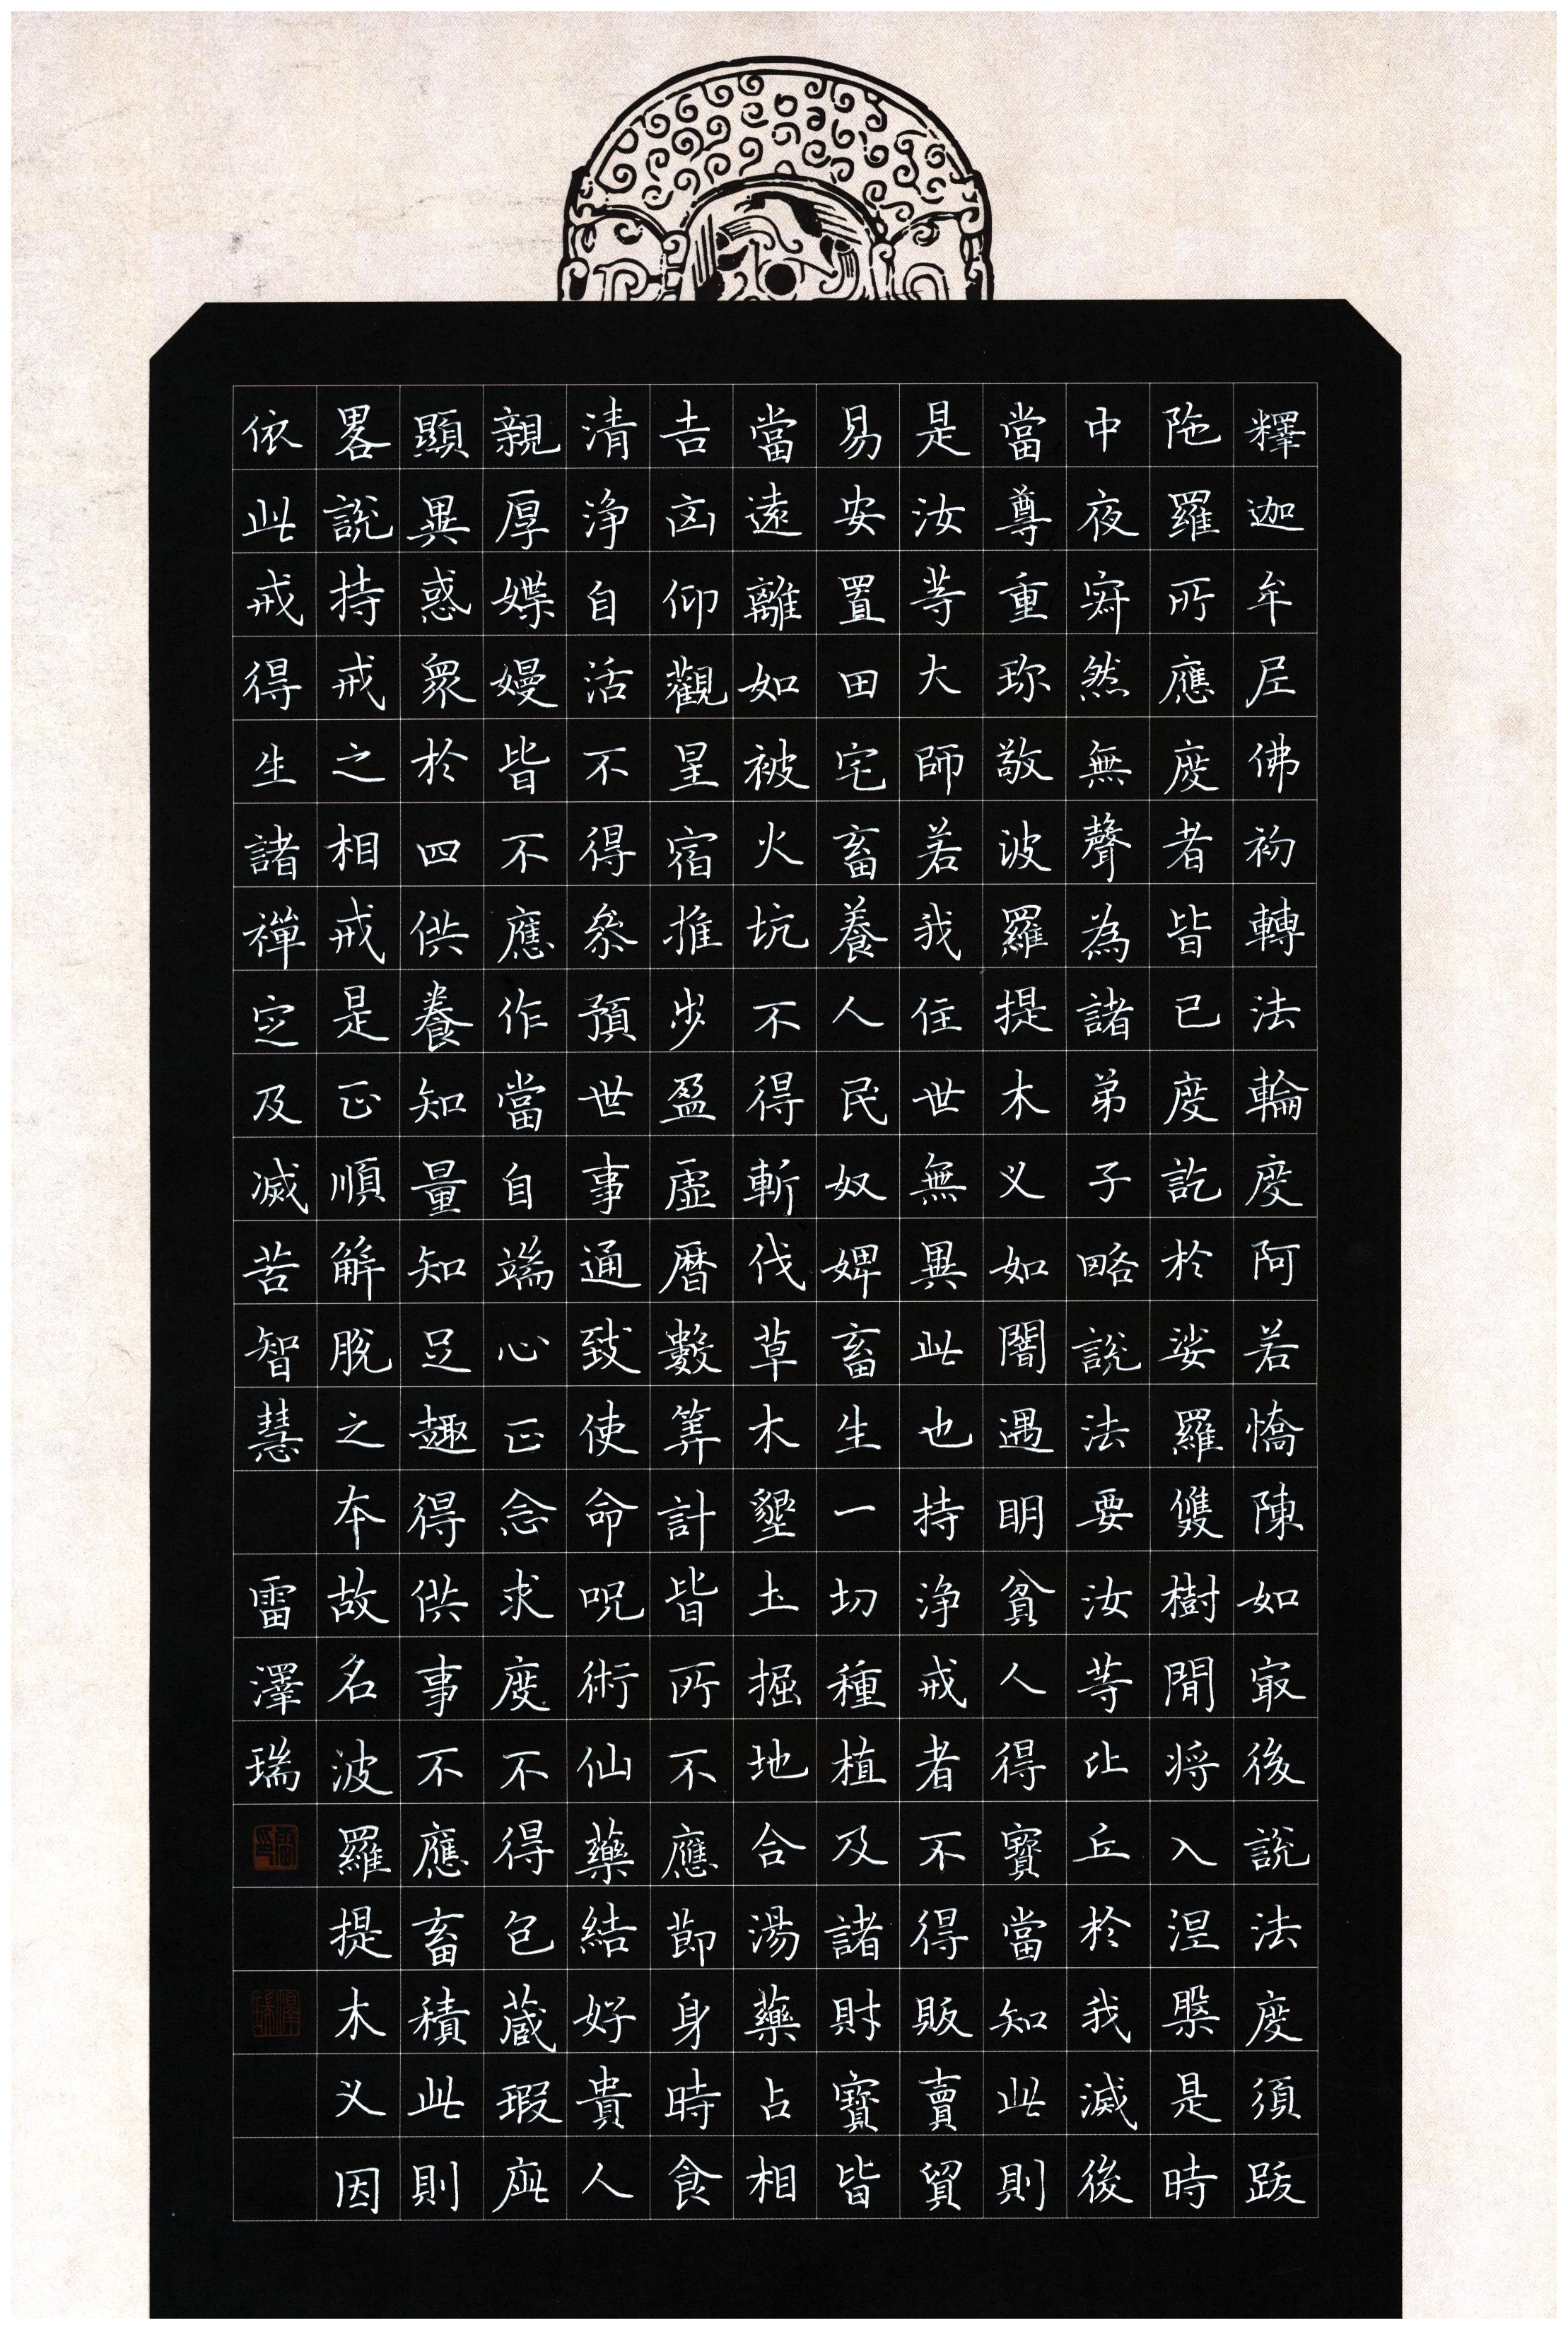 釋迦牟尼佛初轉法輪度阿若憍陳如寂後說法度須跋
陁羅所應度者皆已度訖於娑羅雙樹間将入涅槃是時
中夜寂然無聲為諸弟子略說法要汝等比丘於我滅後
當尊重珎敬波羅提木义如闇遇明貧人得寶當知此則
是汝等大師若我住世無異此也持浄戒者不得販賣貿
易安置田宅畜養人民奴婢畜生一切種植及諸財寶皆
當遠離如被火坑不得斬伐草木墾土掘地合湯藥占相
吉凶仰觀星宿推步盈虛曆數筭計皆所不應節身時食
清浄自活不得叅預世事通致使命呪術仙藥結好貴人
親厚媟嫚皆不應作當自端心正念求度不得包蔵瑕疵
顯異惑衆於四供養知量知足趣得供事不應畜積此則
畧說持戒之相戒是正順解脫之本故名波羅提木义因
依此戒得生諸禪定及滅苦智慧 雷澤瑞